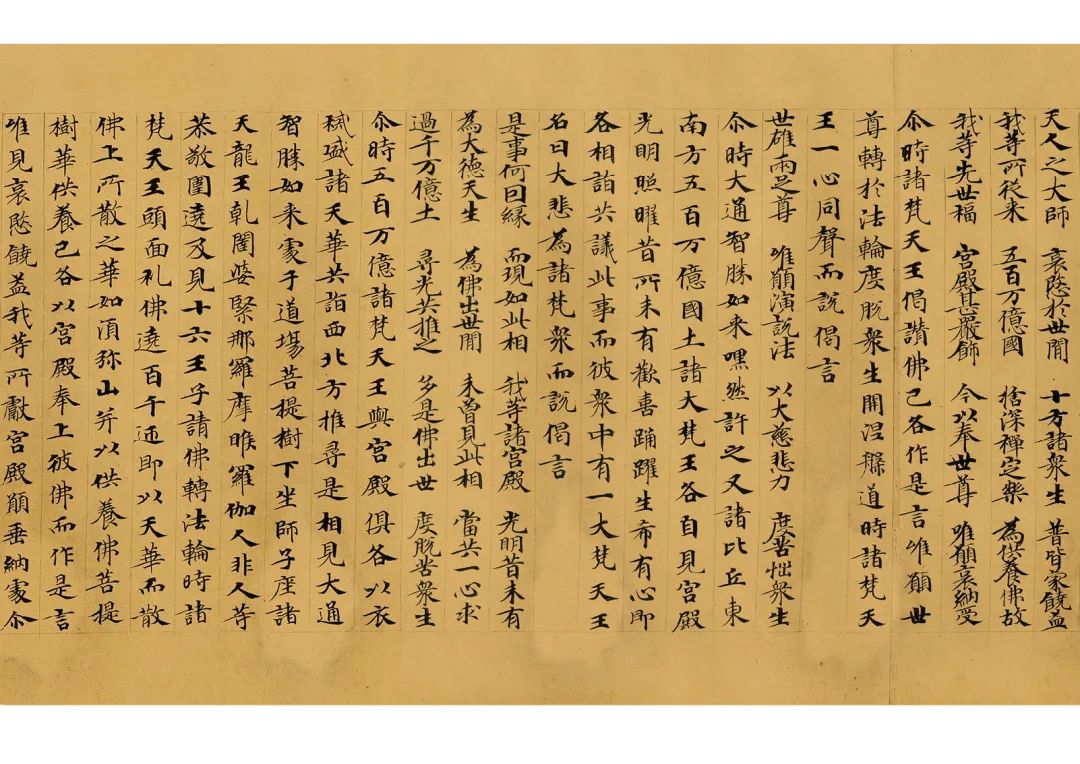 天人之大師 哀愍於世間 十方諸衆生 普皆蒙饒益
我等所從来 五百万億國 捨深禪定樂 為供養佛故
我等先世福 宮殿甚嚴飾 今以奉世尊 唯願哀納受
尒時諸梵天王偈讚佛已各作是言唯願世
尊轉於法輪度脫衆生開涅槃道時諸梵天
王一心同聲而說偈言
世雄兩足尊 唯願演說法 以大慈悲力 度苦惱衆生
尒時大通智勝如来嘿然許之又諸比丘東
南方五百万億國土諸大梵王各自見宮殿
光明照曜昔所未有歡喜踊躍生希有心即
各相詣共議此事而彼衆中有一大梵天王
名曰大悲為諸梵衆而說偈言
是事何因緣 而現如此相 我等諸宮殿 光明昔未有
為大德天生 為佛出世間 未曾見此相 當共一心求
過千万億土 尋光共推之 多是佛出世 度脫苦衆生
尒時五百万億諸梵天王與宮殿俱各以衣
祴盛諸天華共詣西北方推尋是相見大通
智勝如来處于道場菩提樹下坐師子座諸
天龍王乹闥婆緊那羅摩睺羅伽人非人等
恭敬圍遶及見十六王子請佛轉法輪時諸
梵天王頭面礼佛遶百千迊即以天華而散
佛上所散之華如湏弥山并以供養佛菩提
樹華供養已各以宮殿奉上彼佛而作是言
唯見哀愍饒益我等所獻宮殿願垂納處尒